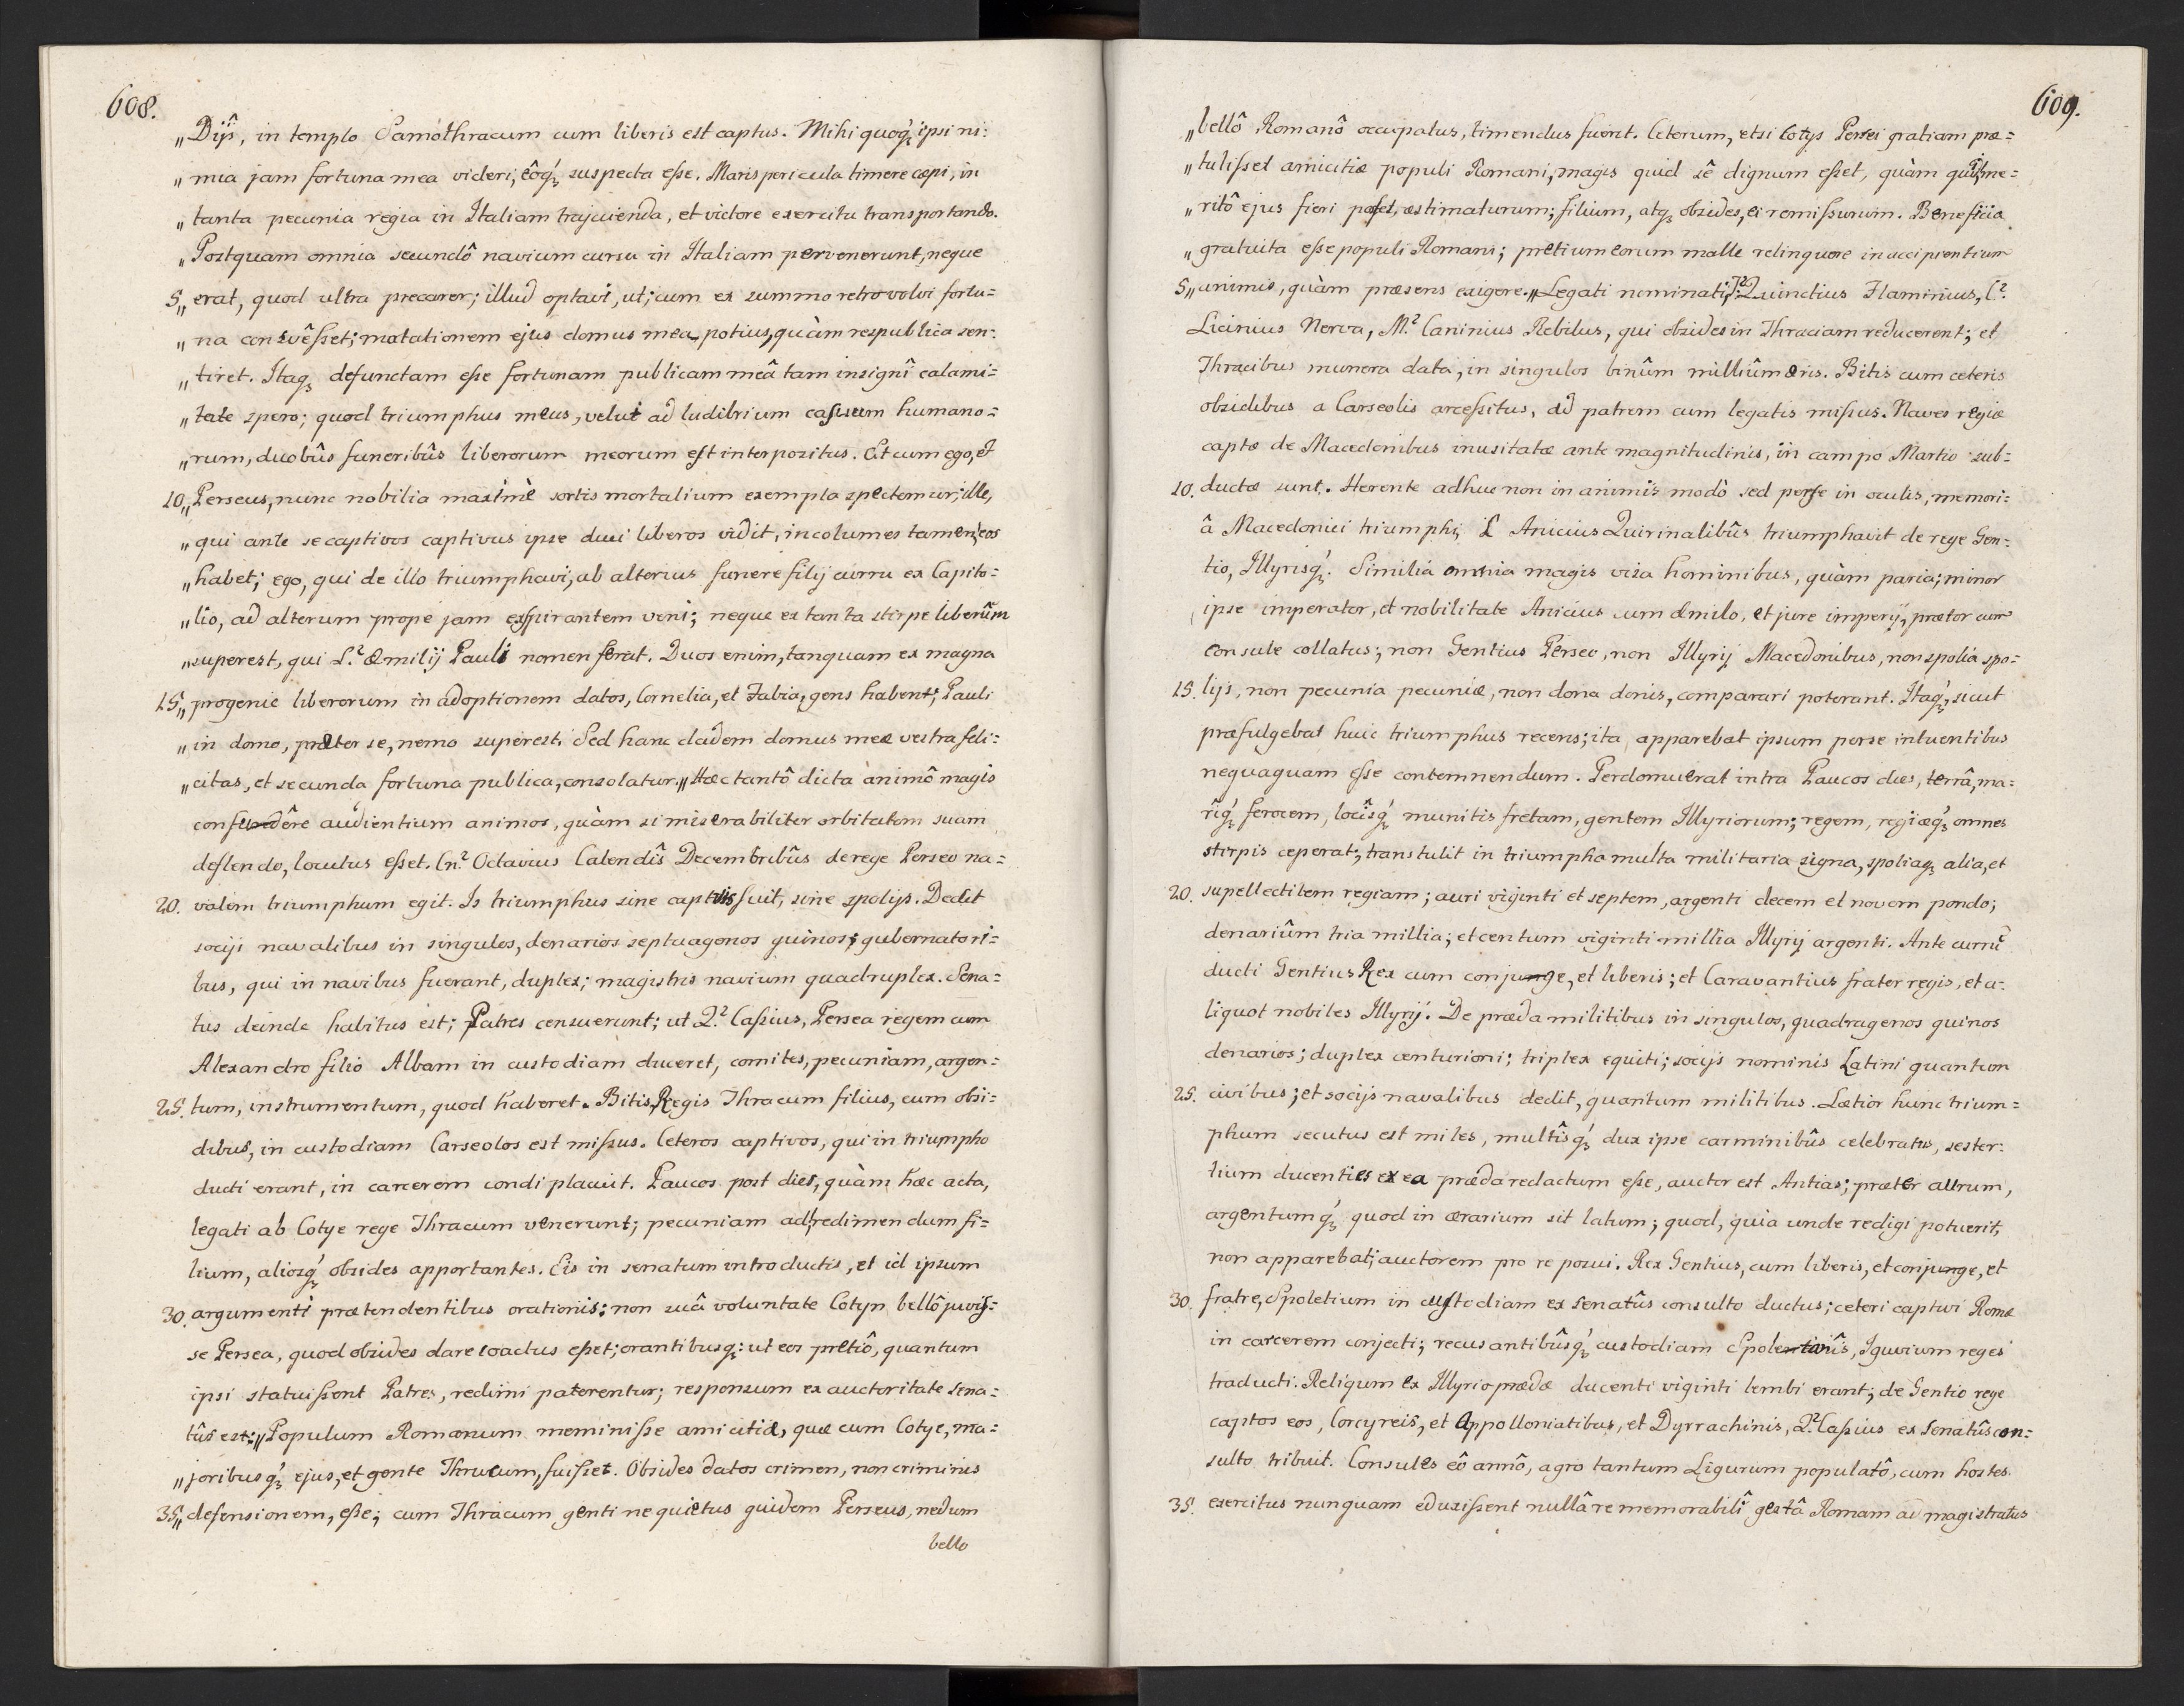 608.
„Dijŝ, in templo Samothracum cum liberis est captus. Mihi quoq́ʒ ipsi ni=
„mia jam fortuna mea videri, eôq́ʒ suspecta esse. Maris pericula timere cepi, in
„tanta pecunia regia in Italiam trajicienda, et victore exercitu transportando.
„Postquam omnia secundô navium cursu in Italiam pervenerunt, neque
5„ erat, quod ultra precarer; illud optavi, ut; cum ex summo retro volvi fortu=
„na consvêsset; mutationem ejus domus mea potius, quàm respublica sen=
„tiret. Itaqʒ defunctam esse fortunam publicam meâ tam insignî calami=
„tate spero; quod triumphus meus, velut ad ludibrium casuum humano=
„rum, duobûs funeribûs liberorum meorum est interpositus. Et cum ego, et
10„ Perseus, nunc nobilia maximè sortis mortalium exempla spectemur; ille,
„qui ante se captivos captivus ipse duci liberos vidit, incolumes tamen, eos
„habet; ego, qui de illo triumphavi, ab alterius funere filij curru ex Capito=
„lio, ad alterum prope jam exspirantem veni; neque ex tanta stirpe liberûm
„superest, qui L.² Æmilij Pauli nomen ferat. Duos enim, tanquam ex magna
15„ progenie liberorum in adoptionem datos, Cornelia, et Fabia, gens habent; Pauli
„in domo, præter se, nemo superest. Sed hanc cladem domus meæ vestra feli=
„citas, et secunda fortuna publica, consolatur.„ Hæc tantô dicta animô magis
confudêre audientium animos, quàm si miserabiliter orbitatem suam
deflendo, locutus esset. Cn.² Octavius Calendîs Decembribûs de rege Perseo na=
20. valem triumphum egit. Is triumphus sine captivis fuit, sine spolijs. Dedit
socijs navalibus in singulos, denarios septuagenos quinos; gubernatori=
bus, qui in navibus fuerant, duplex; magistris navium quadruplex. Sena=
tus deinde habitus est; Patres censuerunt; ut Q.² Cassius, Persea regem cum
Alexandro filio Albam in custodiam duceret, comites, pecuniam, argen=
25. tum, instrumentum, quod haberet. Bitis, Regis Thracum filius, cum obsi=
dibus, in custodiam Carseolos est missus. Ceteros captivos, qui in triumpho
ducti erant, in carcerem condi placuit. Paucos post dies, quàm hæc acta,
legati ab Cotye rege Thracum venerunt; pecuniam ad redimendum fi=
lium, aliosq́ʒ obsides apportantes. Eis in senatum introductis, et id ipsum
30. argumenti prætendentibus orationis; non suâ voluntate Cotyn bellô juvis=
se Persea, quod obsides dare coactus esset; orantibusqʒ: ut eos pretiô, quantum
ipsi statuissent Patres, redimi paterentur; responsum ex auctoritate Sena=
tûs est: „Populum Romanum meminisse amicitiæ, quæ cum Cotye, ma=
„joribusq́ʒ ejus, et gente Thracum, fuisset. Obsides datos crimen, non criminis
35„ defensionem, esse; cum Thracum genti ne quietus quidem Perseus, nedum
bello
609.
„bellô Romanô occupatus, timendus fuerit. Ceterum, etsi Cotys Persei gratiam præ=
„tulisset amicitiæ populi Romani, magis quid sê dignum esset, quàm quid me=
„ritô ejus fieri posset, æstimaturum; filium, atqʒ obsides, ei remissurum. Beneficia
„gratuita esse populi Romani; pretium eorum malle relinquere in accipientium
5„ animis, quàm præsens exigere.„ Legati nominati, T.² Quinctius Flaminius, C.²
Licinius Nerva, M.² Caninius Rebilus, qui obsides in Thraciam reducerent; et
Thracibus munera data, in singulos binûm milliûm æris. Bitis cum ceteris
obsidibus a Carseolis arcessitus, ad patrem cum legatis missus. Naves regiæ
captæ de Macedonibus inusitatæ ante magnitudinis, in campo Martio sub=
10. ductæ sunt. Herente adhuc non in animis modò sed pene in oculis, memori=
â Macedonici triumphi, L Anicius Quirinalibûs triumphavit de rege Gen=
tio, Illyrisq́ʒ. Similia omnia magis visa hominibus, quàm paria; minor
ipse imperator, et nobilitate Anicius cum Æmilo, et jure imperij, prætor cum
consule collatus; non Gentius Perseo, non Illyrij Macedonibus, non spolia spo=
15. lijs, non pecunia pecuniæ, non dona donis, comparari poterant. Itaq́ʒ, sicut
præfulgebat huic triumphus recens; ita apparebat ipsum per se intuentibus
nequaquam esse contemnendum. Perdomuerat intra Paucos dies, terrâ, ma=
riq́ʒ ferocem, locîsq́ʒ munitis fretam, gentem Illyriorum; regem, regiæq́ʒ omnes
stirpis ceperat; transtulit in triumpho multa militaria signa, spoliaqʒ alia, et
20. supellectilem regiam; auri viginti et septem, argenti decem et novem pondo;
denariûm tria millia; et centum viginti millia Illyrij argenti. Ante currû
ducti Gentius Rex cum conjunge, et liberis; et Caravantius frater regis, et a=
liquot nobiles Illyrij. De præda militibus in singulos, quadragenos quinos
denarios; duplex centurioni; triplex equiti; socijs nominis Latini quantum
25. civibus; et socijs navalibus dedit, quantum militibus. Lætior hunc trium=
phum secutus est miles, multîsq́ʒ dux ipse carminibûs celebratus, sester=
tium ducenties ex ea præda redactum esse, auctor est Antias; præter aurum,
argentumq́ʒ quod in ærarium sit latum; quod, quia unde redigi potuerit,
non apparebat; auctorem pro re posui. Rex Gentius, cum liberis, et conjunge, et
30. fratre, Spoletium in custodiam ex senatûs consulto ductus; ceteri captivi Romæ
in carcerem conjecti; recusantibûsq́ʒ custodiam Spoletanîs, Iguvium reges
traducti. Reliqum ex Illyrio prædæ ducenti viginti lembi erant; de Gentio rege
captos eos, Corcyreis, et Appolloniatibus, et Dyrrachinis, Q.² Cassius ex Senatûs con=
sulto tribuit. Consules eô annô, agro tantum Ligurum populatô, cum hostes
35. exercitus nunquam eduxissent nullâ re memorabilî gestâ Romam ad magistratus